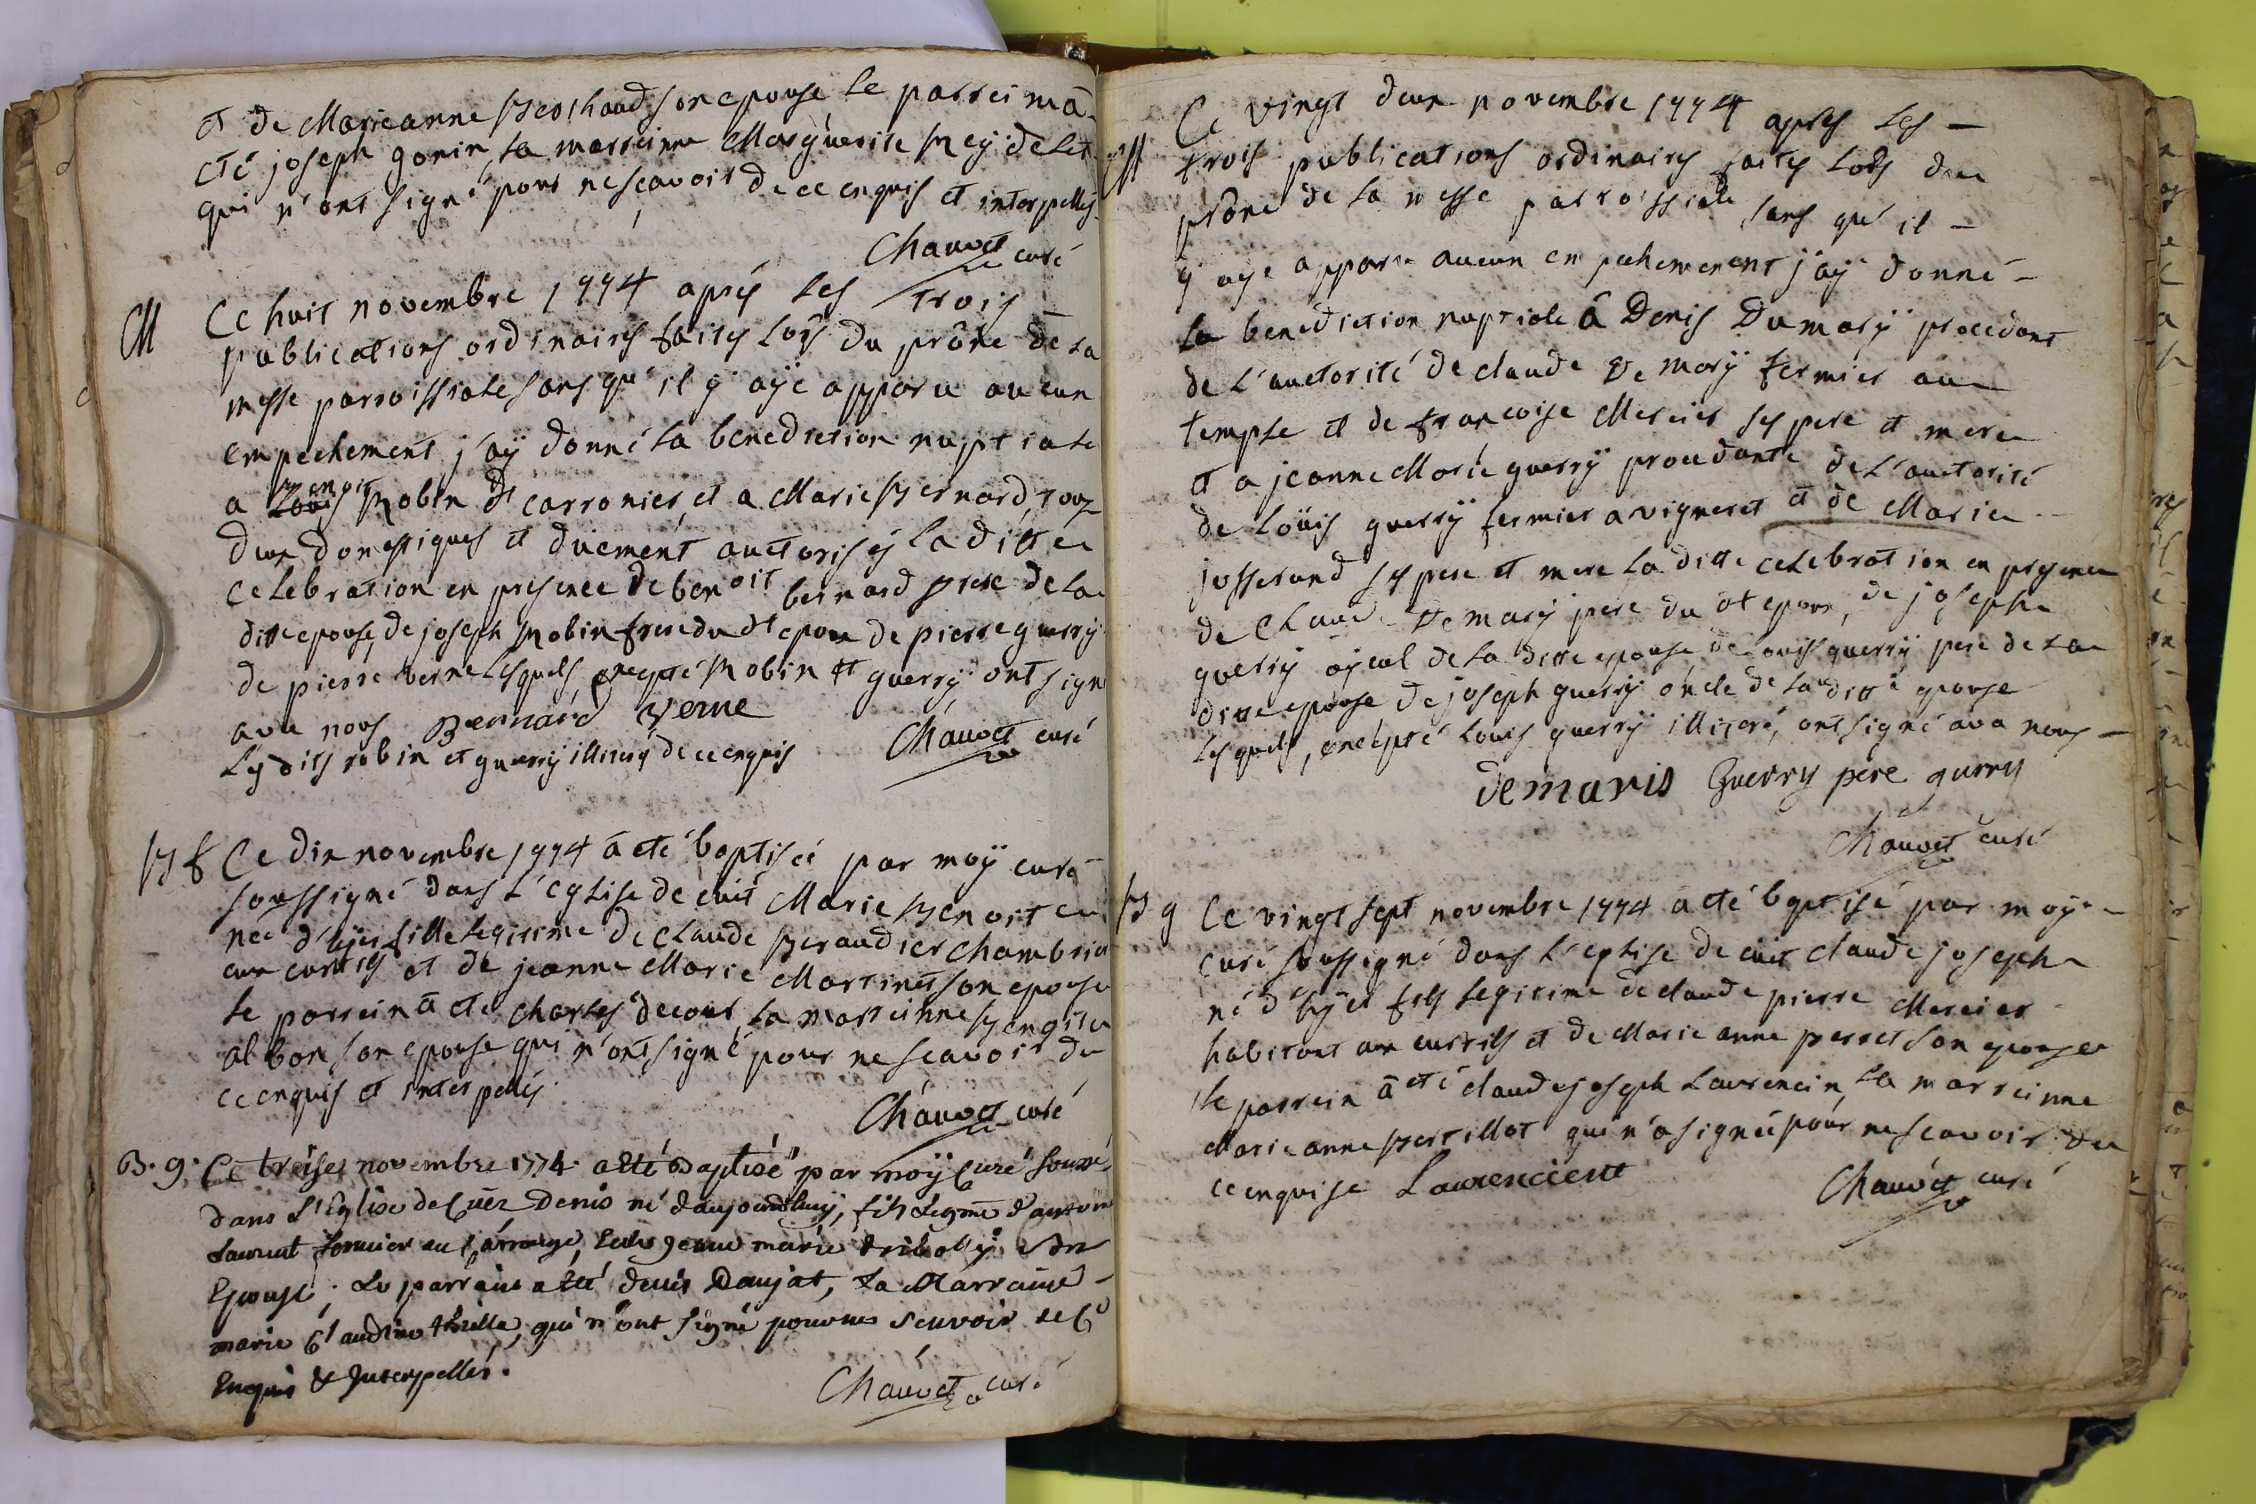 et de Marieanne Bershaud son epouse le parrein a
eté joseph gonin, la marreinne Marguerite
qui n'ont signé pour ne scavoir de ce enquis et interpellés
Chauvet curé
M
Ce huit novembre 1774 aprés les trois
publications ordinaires faites lors du prône de la
messe parroissiale sans qu'il y aÿe apparu aucun
empechement j'aÿ donné la benediction nuptiale
a Benoit Robin dt carronier, et a Marie Bernard, tous
deux domestiques et düement auctorisés la ditte
celebration en presence de benoit bernard pere de la
ditte epouse, de joseph Robin frere du dt epoux de pierre guerrÿ
de pierre verne lesquels, excepté Robin et guerrÿ ont signé
avec nous Bernard Verne
Lesdits robin et guerrÿ illiterés de ce enquis Chauvet curé
B f Ce dix novembre 1774 a eté baptisée par moÿ curé
soussigné dans l'eglise de cuet Marie Benoite
née d'hÿer fille legitime de Claude Beraudier chambrier
aux curtils et de jeanne Marie Martinet son epouse
le parrein a eté Charles decour, la marreinne Benoite
albon son epouse qui n'ont signé pour ne scavoir de
ce enquis et interpellés
Chauvet curé
B. g. Ce treise novembre 1774 a eté Baptisé par moÿ Curé sousse.
dans L'Eglise de Cuet Denis né d'aujourdhuy, fils Legme d'antoine
Laurent fermier au Carrouge, Et de Jeanne marie son
Epouse. Le parrain a eté denis Daujat, La Marraine
marie Claudine, qui n'ont signé pour ne scavoir de Ce
Enquis & Interpellés.
Chauvet curé
M
Ce vingt deux novembre 1774 apres les
trois publications ordinaires faites lors du
prône de la messe parroissiale sans qu'il
ÿ aye apparu aucun empechement j'aÿ donné
la benediction nuptiale â Denis Demarÿ procedant
de l'auctorité de claude De marÿ fermier au
temple et de francoise Mercier ses pere et mere
et a jeanne Marie guerrÿ procedante de l'auctorité
de Loüis guerrÿ fermier a vigneret et de Marie
josserand ses pere et mere la ditte celebration en presence
de Claude De marÿ pere du dt epoux, de joseph
guerrÿ aÿeul de la ditte epouse de Louis guerrÿ pere de la
ditte epouse de joseph guerrÿ oncle de la ditte epouse
lesquels, excepté Louis guerrÿ illiteré, ont signé avec nous
demaris Guerry pere gurry
Chauvet curé
B g Ce vingt sept novembre 1774 a eté baptisé par moÿ
curé soussigné dans l'eglise de cuet claude joseph
né d'hÿer fils legitime de claude pierre Mercier
habitant aux curtils et de Marie anne perret son epouse
le parrein a eté claude joseph Laurencin, la marreinne
Marie anne Bertillot qui n'a signé pour ne scavoir de
ce enquise Laurencient Chauvet curé